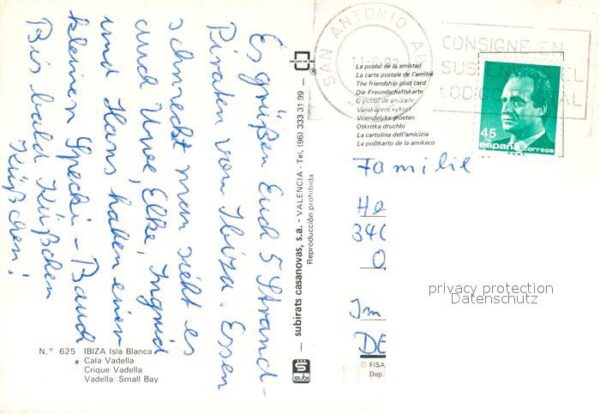 Es grüßen Euch 5 Strand-
Piraten von Ibiza. Essen
schmeckt man sieht es
und Uwe, Elke, Ingrid
und Hans haben einen
kleinen Specki-Bauch
Bis bald Küßchen
Küßchen!
N.° 625 IBIZA Isla Blanca
Cala Vadella
Crique Vadella
Vadella Small Bay
subirats casanovas, s.a. - VALENCIA - Tel. (96) 333 31 99
Reproducción prohibida
subi
La postal de la amistad
La carte postale de l'amitié
The friendship post card
Die Freundschaftskarte
O postal de amizade
Vänskapens vykort
Vriendelijke groeten
Otkritka druchbi
La cartolina dell'amicizia
La poŝtkarto de la amikeco
SAN ANTONIO A
CONSIGNE EN
SUS EL
CODIGO AL
45
españa correos
Familie
He
340
O
Im
DE
© FISA
Dep.
privacy protection
Datenschutz